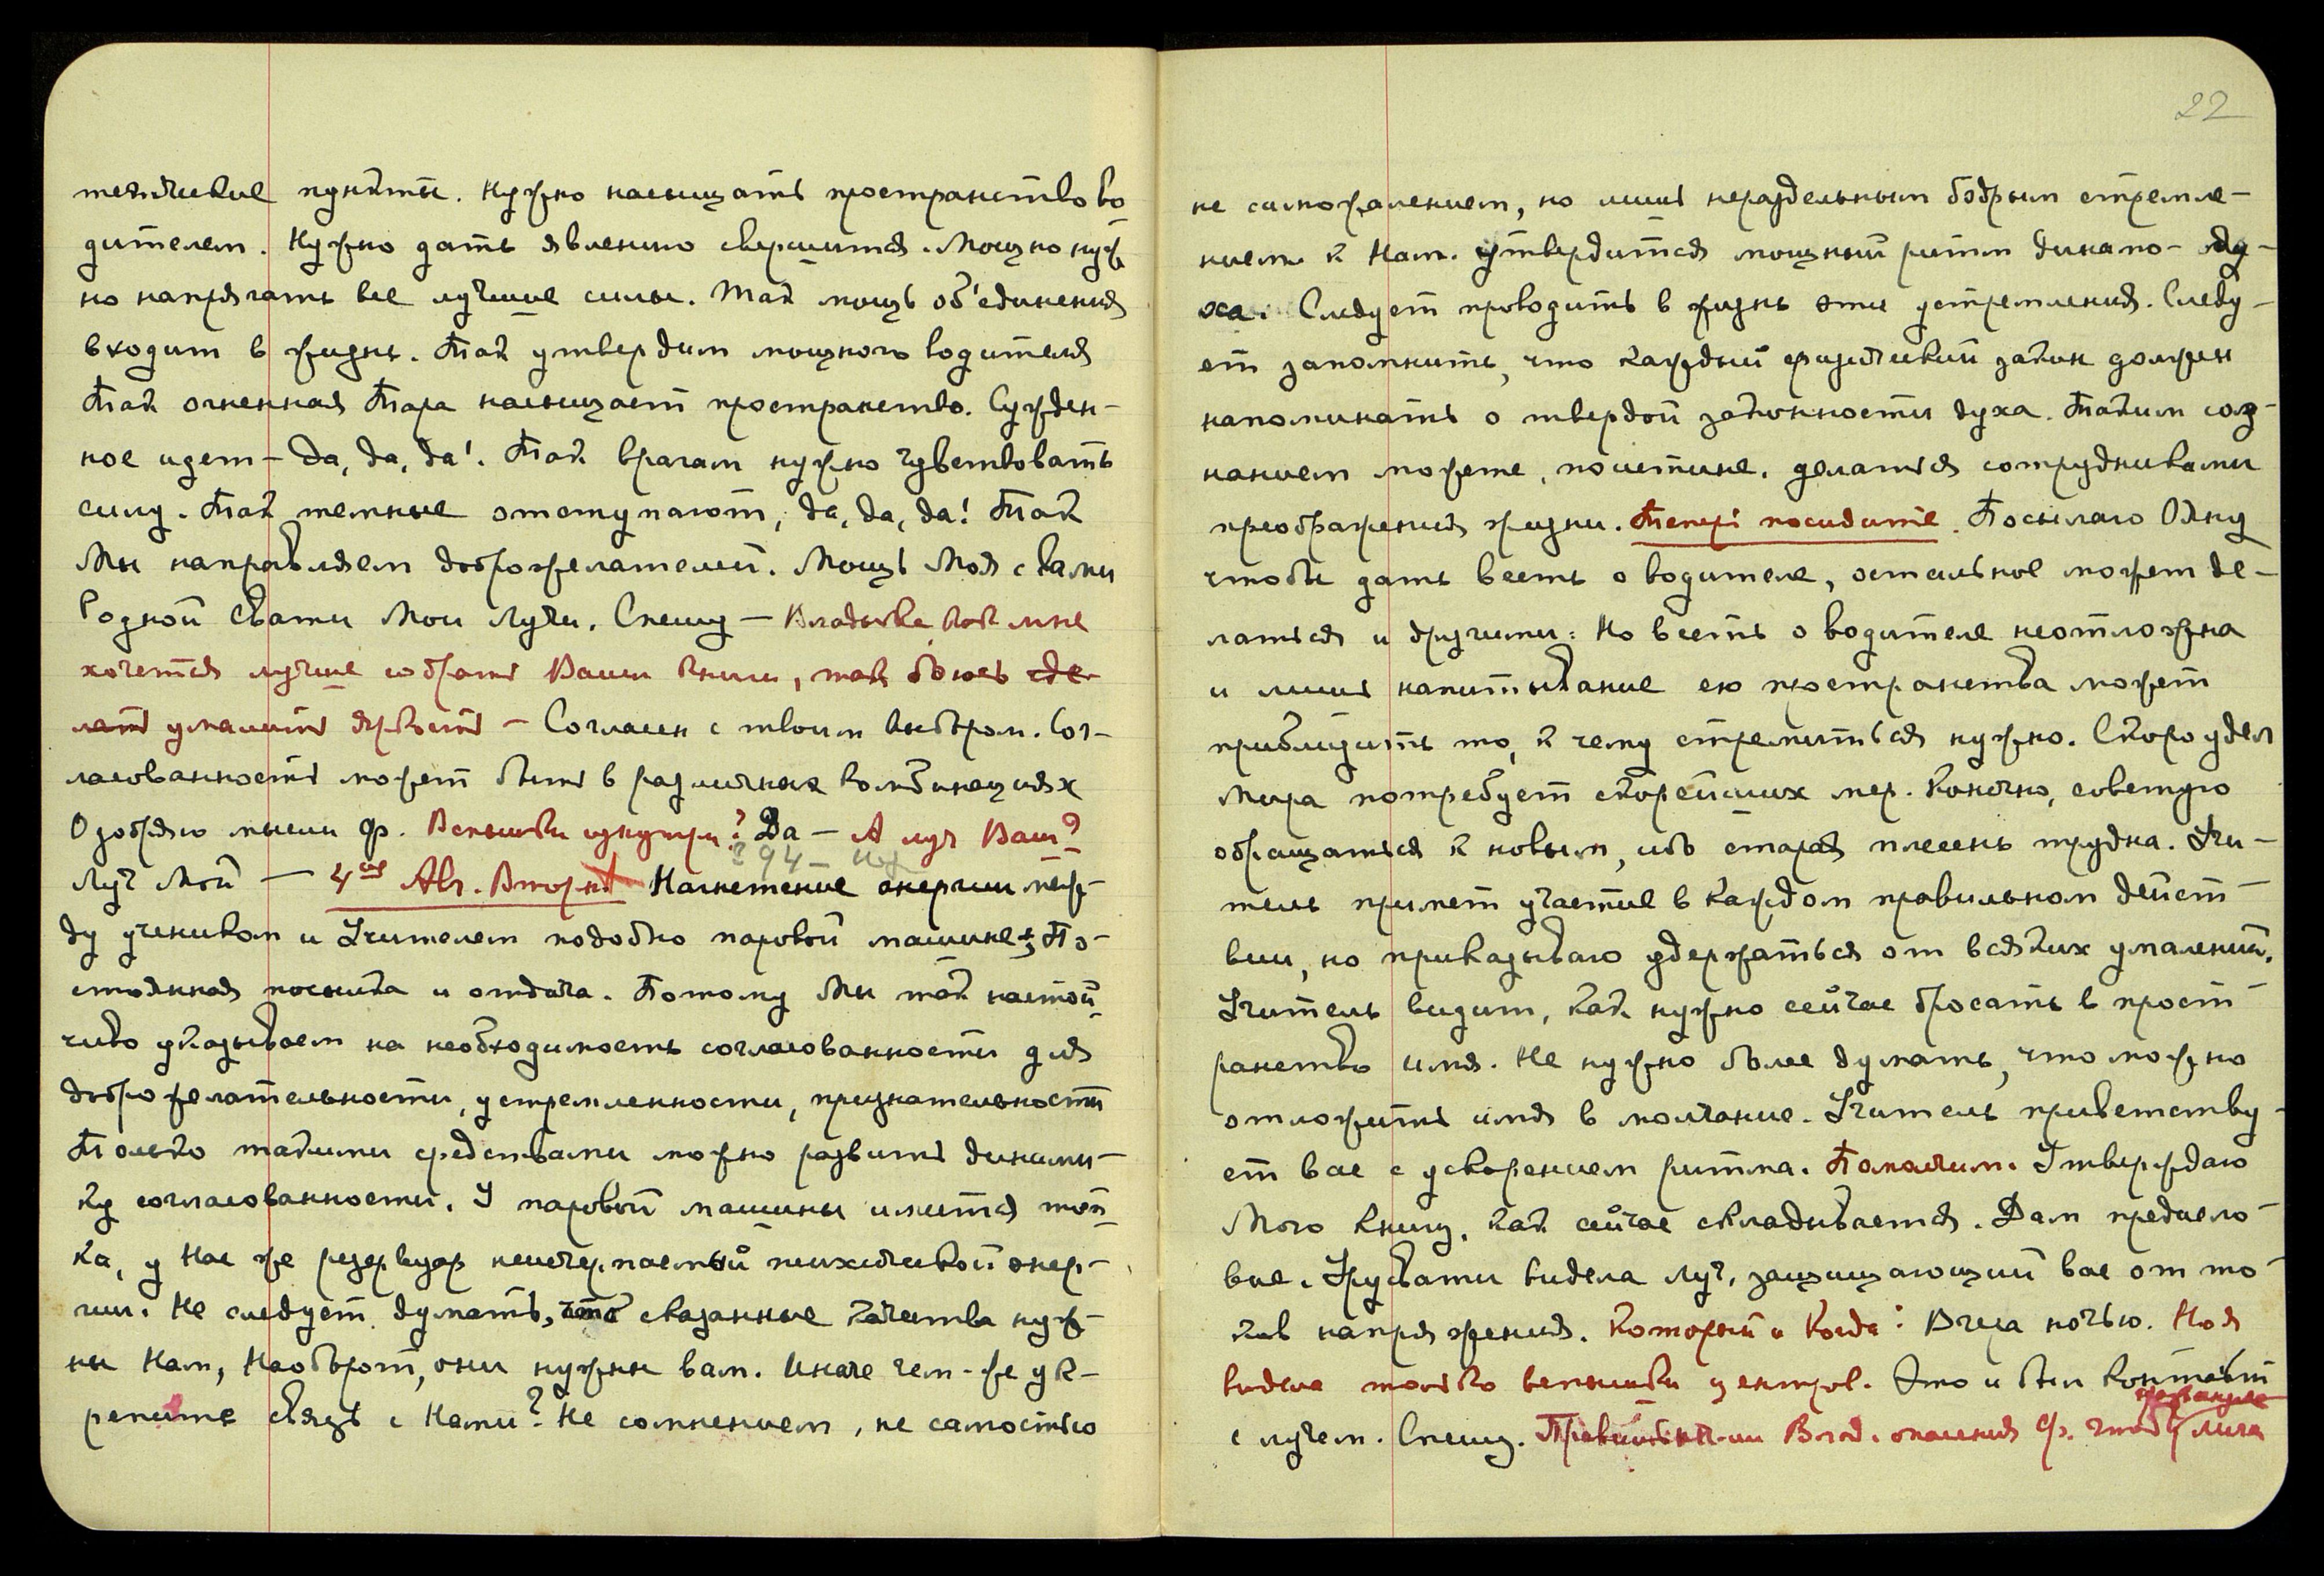 тетические пункты. Нужно насыщать пространство во-
дителем. Нужно дать явлению свершиться. Мощно нуж
но напрягать все лучшие силы. Так мощь об'единения
входит в жизнь. Так утвердим мощного водителя
Так огненная Тара насыщает пространство. Сужден-
ное идет — Да, да, да! Так врагам нужно чувствовать
силу. Так темные отступают, да, да, да! Так
Мы направляем доброжелателей. Мощь Моя с вами
Родной Свати Мои Лучи. Спешу — Владыка, как мне
хочется лучше собрать Ваши книги, так боюсь де-
лать умалить яркость — Согласен с твоим выбором. Сог-
ласованность может быть в различных комбинациях
Одобряю мысли Ф. Вспышки изнутри? Да — А луч Ваш?
394 —
Луч Мой — 4ое Авг. Вторн. Нагнетение энергии меж-
ду учеником и Учителем подобно паровой машине; По-
стоянная посылка и отдача. Потому Мы так настой-
чиво указываем на необходимость согласованности для
доброжелательности, устремленности, признательности
Только такими средствами можно развить динами-
ку согласованности. У паровой машины имеется топ-
ка, у Нас же резервуар неисчерпаемый психической энер-
гии. Не следует думать, что сказанные качества нуж-
ны Нам, Наоборот, они нужны вам. Иначе чем-же ук-
репите связь с Нами? Не сомнением, не самостью
22
не саможалением, но лишь нераздельным бодрым стремле-
нием к Нам. Утвердится мощный ритм динамо-ду-
ха. Следует проводить в жизнь эти устремления. Следу-
ет запомнить, что каждый физический закон должен
напоминать о твердой законности духа. Таким соз-
нанием можете, поистине, делаться сотрудниками
преображения жизни. Теперь посидите. Посылаю Ояну
чтобы дать весть о водителе, остальное может де-
латься и другими: Но весть о водителе неотложна
и лишь напитывание ею пространства может
приблизить то, к чему стремиться нужно. Скоро удел
Мира потребует скорейших мер. Конечно, советую
обращаться к новым, ибо старая плесень трудна. Учи-
тель примет участие в каждом правильном дейст-
вии, но приказываю удержаться от всяких умалений.
Учитель видит, как нужно сейчас бросать в прост-
ранство имя. Не нужно более думать, что можно
отложить имя в молчание. Учитель приветству-
ет вас с ускорением ритма. Помолчим. Утверждаю
Мою книгу, как сейчас складывается. Дам предисло-
вие. Урусвати видела луч, защищающий вас от то-
ков напряжения. Который и Когда? Вчера ночью. Но я
видела только вспышки центров. Это и был контакт
с лучем. Спешу. Влад. опасения Ф. чтобы лига